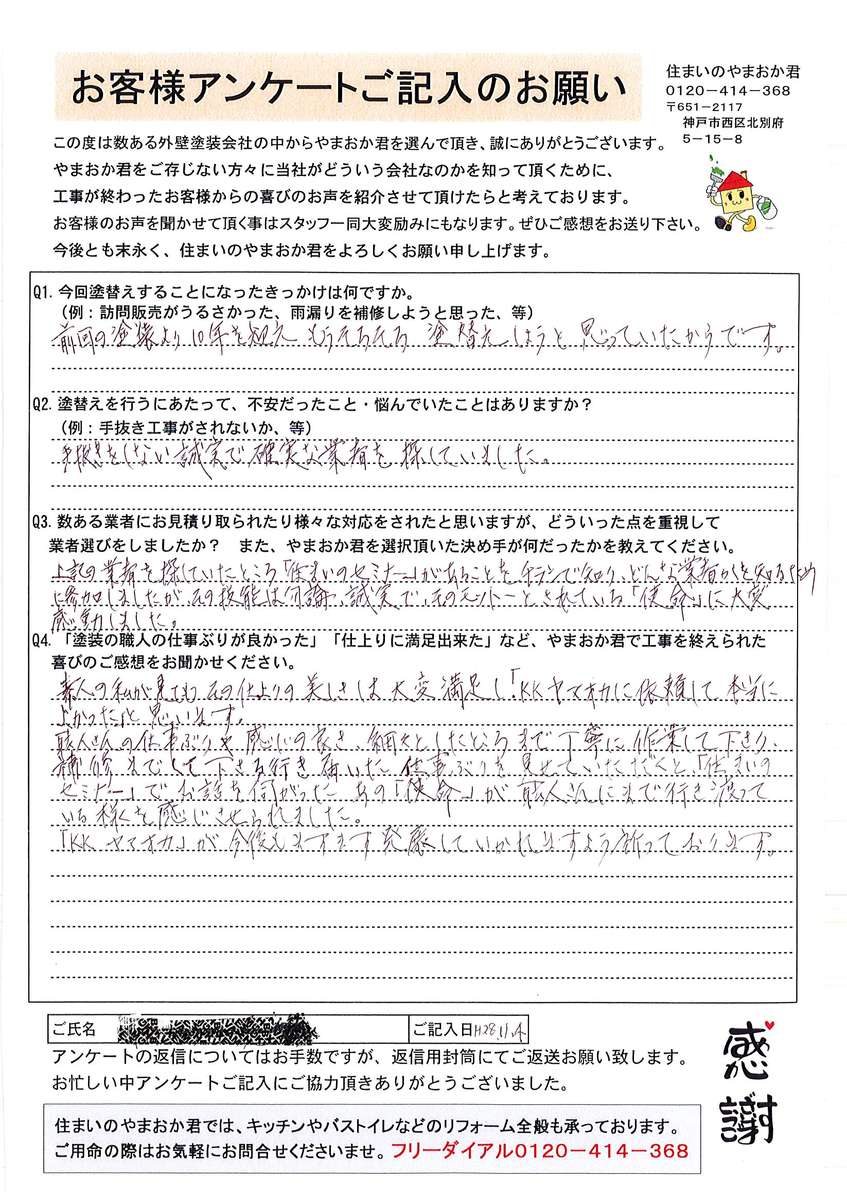 お客様アンケートご記入のお願い
住まいのやまおか君
0120-414-368
〒651-2117
神戸市西区北別府
5-15-8
この度は数ある外壁塗装会社の中からやまおか君を選んで頂き、誠にありがとうございます。
やまおか君をご存じない方々に当社がどういう会社なのかを知って頂くために、
工事が終わったお客様からの喜びのお声を紹介させて頂けたらと考えております。
お客様のお声を聞かせて頂く事はスタッフ一同大変励みにもなります。ぜひご感想をお送り下さい。
今後とも末永く、住まいのやまおか君をよろしくお願い申し上げます。
Q1. 今回塗替えすることになったきっかけは何ですか。
（例：訪問販売がうるさかった、雨漏りを補修しようと思った、等）
前回の塗装より10年を超え もうそろそろ 塗替えしようと思っていたからです。
Q2. 塗替えを行うにあたって、不安だったこと・悩んでいたことはありますか？
（例：手抜き工事がされないか、等）
手抜きをしない誠実で確実な業者を探していました。
Q3. 数ある業者にお見積り取られたり様々な対応をされたと思いますが、どういった点を重視して
業者選びをしましたか？ また、やまおか君を選択頂いた決め手が何だったかを教えてください。
上記の業者を探していたところ「住まいのセミナー」があることをチラシで知り、どんな業者かを知るため
に参加しましたが、その技能は勿論、誠実で、そのモットーとされている「使命」に大変
感動しました。
Q4. 「塗装の職人の仕事ぶりが良かった」「仕上りに満足出来た」など、やまおか君で工事を終えられた
喜びのご感想をお聞かせください。
素人の私が見ても、その仕上りの美しさは大変満足し「KKヤマオカに依頼して本当に
よかった」と思います。
職人さんの仕事ぶりや感じの良さ、細々としたところまで丁寧に作業して下さり、
補修までして下さる行き届いた仕事ぶりを見せていただくと、「住まいの
セミナー」でお話を伺がった あの「使命」が職人さんにまで行き渡って
いる様を感じさせられました。
「KKヤマオカ」が今後もますます発展していかれますよう祈っております。
ご氏名
ご記入日 H28.11.4
アンケートの返信についてはお手数ですが、返信用封筒にてご返送お願い致します。
お忙しい中アンケートご記入にご協力頂きありがとうございました。
感謝
住まいのやまおか君では、キッチンやバストイレなどのリフォーム全般も承っております。
ご用命の際はお気軽にお問合せくださいませ。フリーダイアル0120-414-368